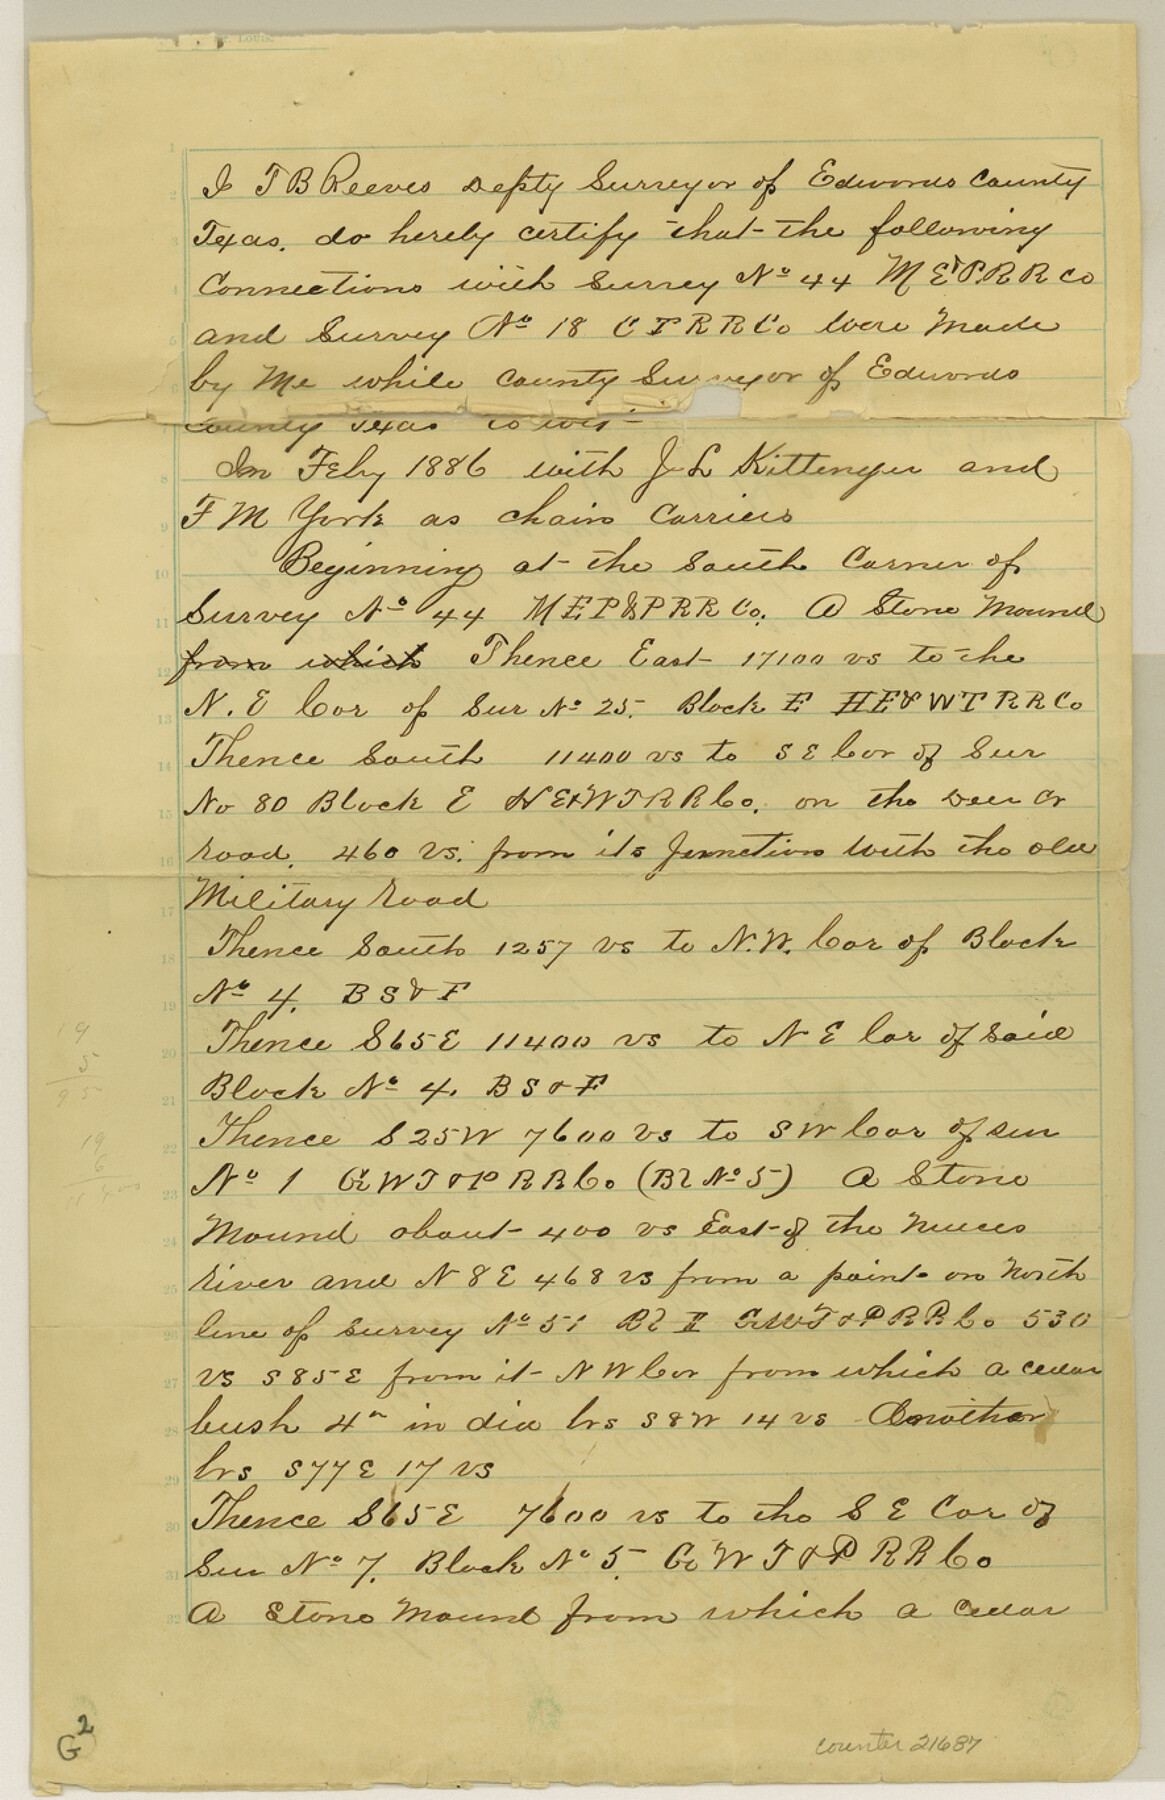 St. Louis.
I T B Reeves Depty Surveyor of Edwards County
Texas. do hereby certify that the following
Connections with Survey No 44 M E & P R R Co
and Survey No 18 C T R R Co were Made
by Me while County Surveyor of Edwards
County Texas to wit
In Feby 1886 with J L Kittenger and
F M York as chain Carriers
Beginning at the South Corner of
Survey No 44 M E P & P R R Co. A Stone Mound
from which Thence East 17100 vs to the
N. E Cor of Sur No 25. Block E H E & W T R R Co
Thence South 11400 vs to S E Cor of Sur
No 80 Block E H E & W T R R Co. on the Deer Cr
road. 460 vs. from its Junction with the old
Military road
Thence South 1257 vs to N.W. Cor of Block
No 4. B S & F
Thence S 65 E 11400 vs to N E Cor of said
Block No 4. B S & F
Thence S 25 W 7600 vs to S W Cor of sur
No 1 G W T & P R R Co (Bl No 5) A Stone
Mound about 400 vs East of the Nueces
River and N 8 E 468 vs from a point on North
line of Survey No 51 Bl I G W T & P R R Co 530
vs S 85 E from it N W Cor from which a cedar
bush 4" in dia brs S 8 W 14 vs Another
brs S 77 E 17 vs
Thence S 65 E 7600 vs to the S E Cor of
Sur No 7. Block No 5. G W T & P R R Co
A Stone Mound from which a cedar
19
5
95
19
6
11400
G2
counter 21687